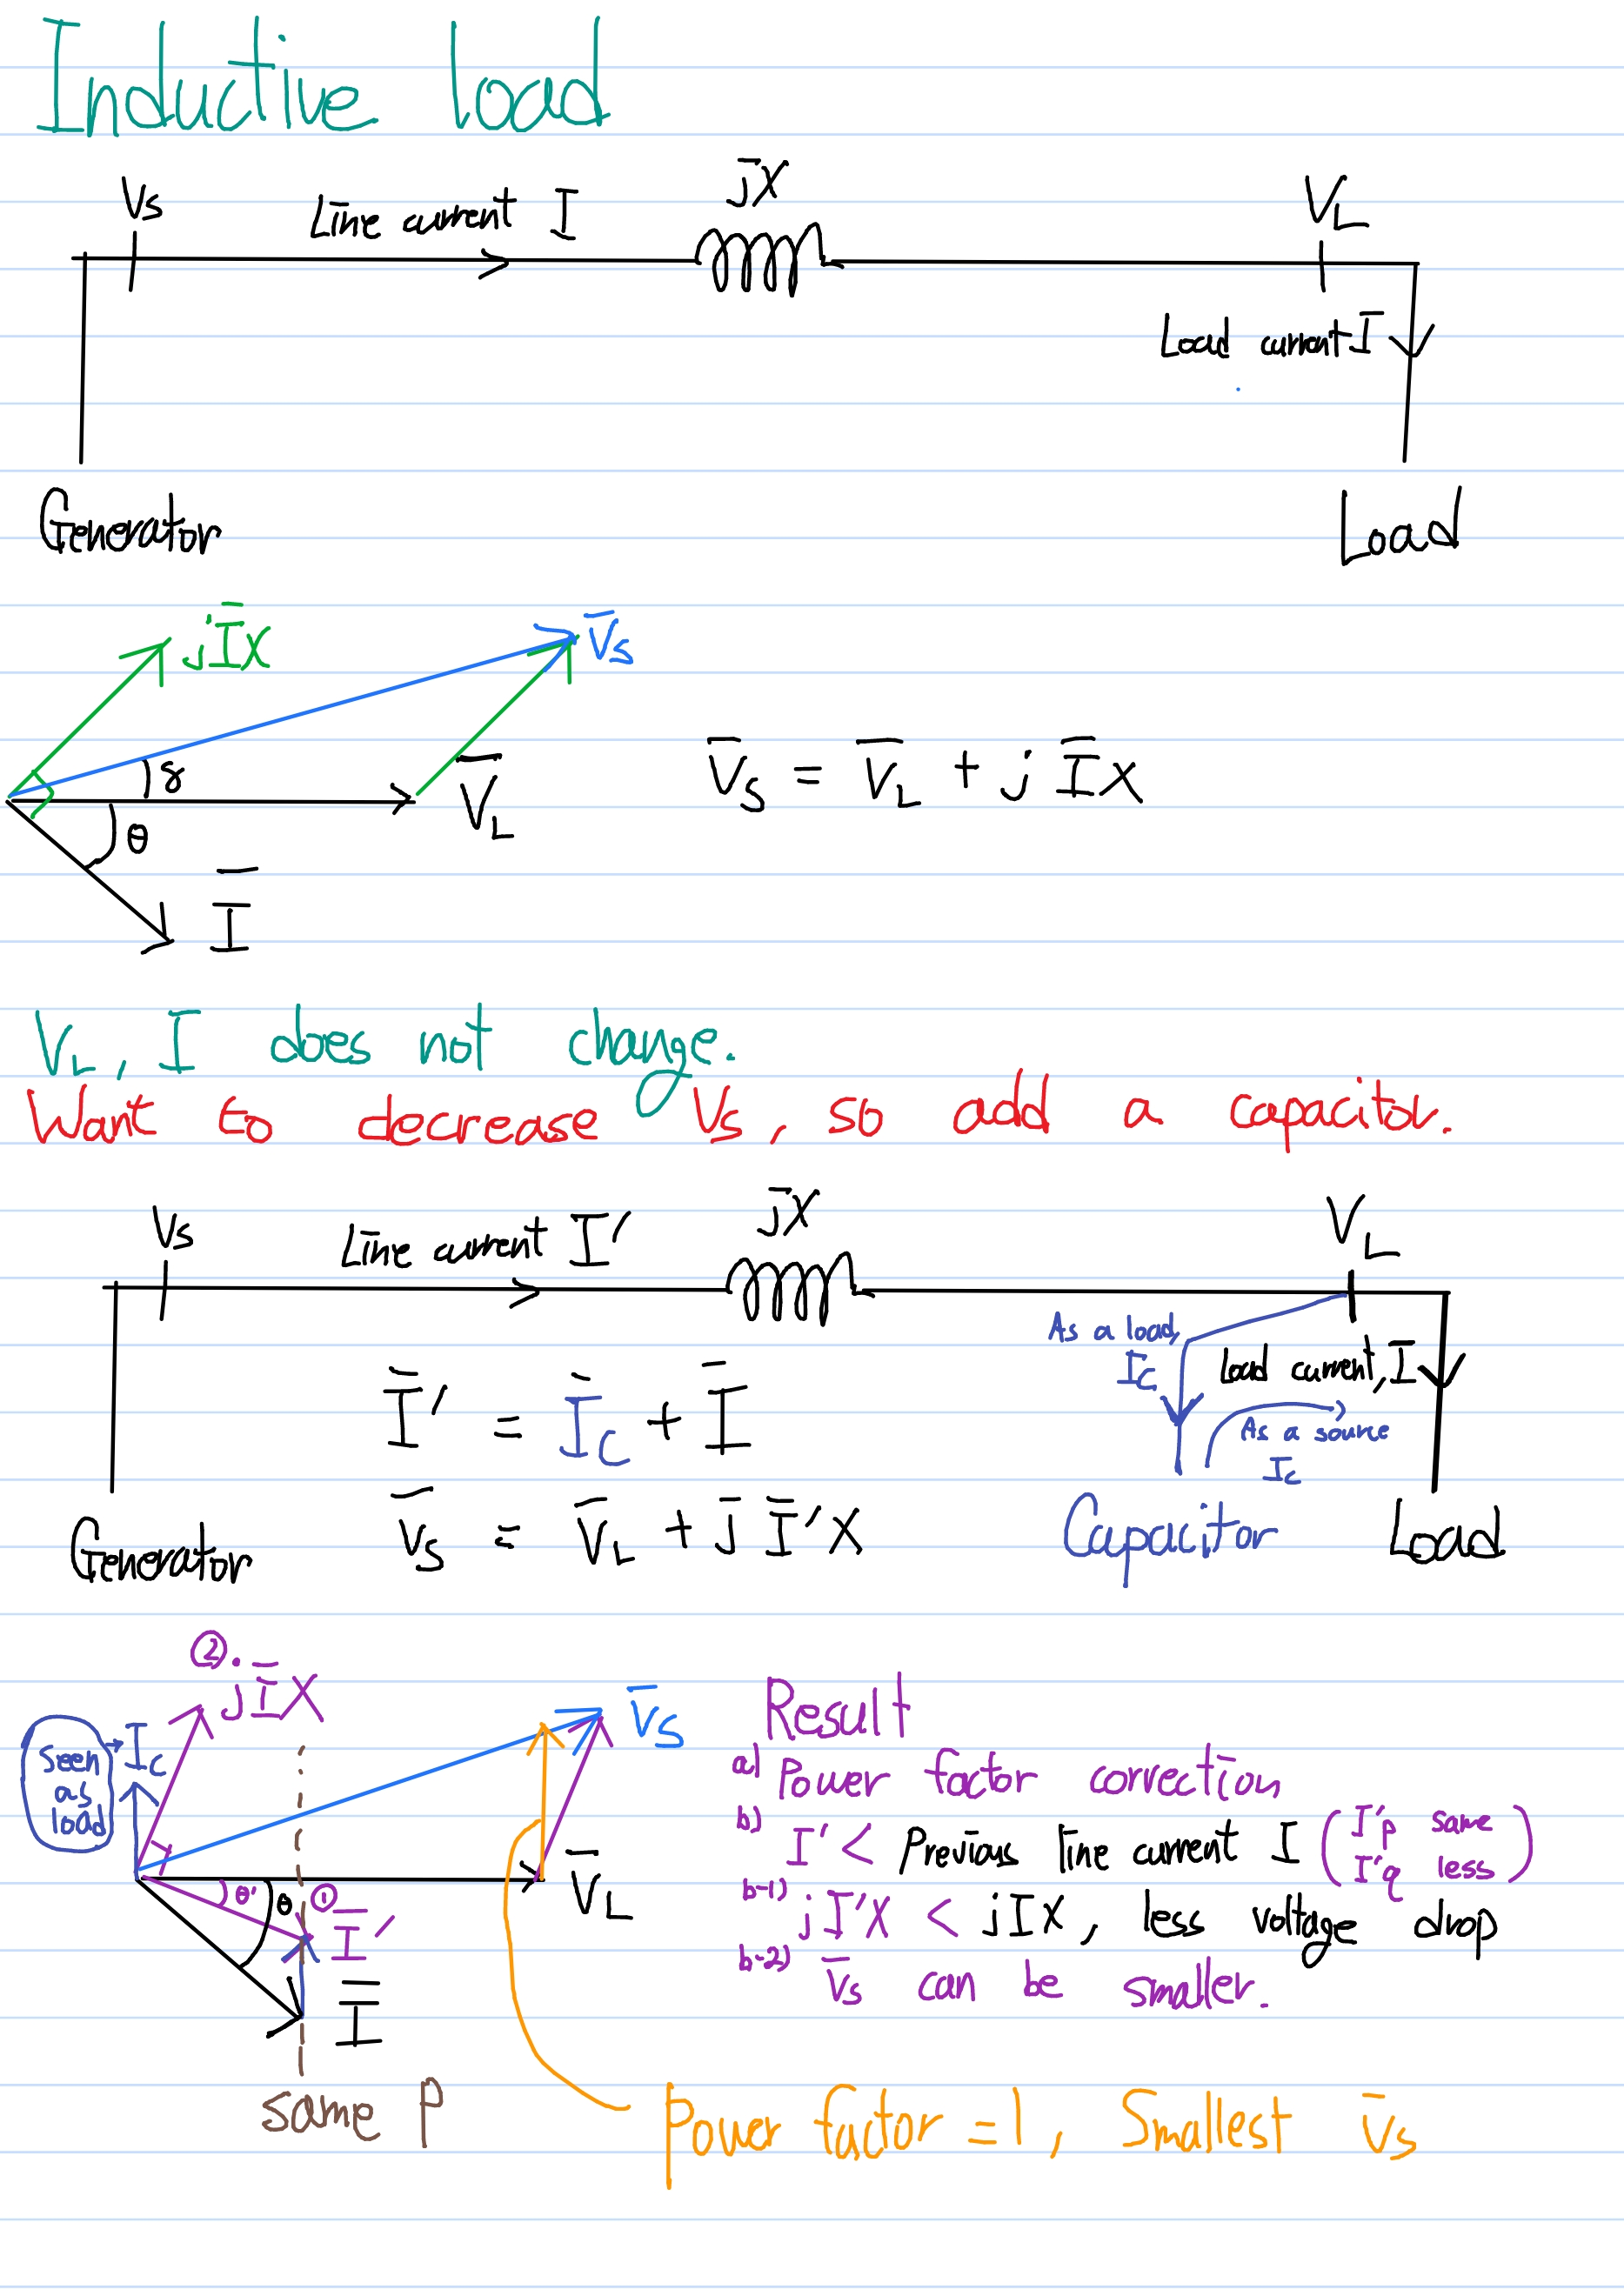 Inductive load
Vs
Line current I
j̄X
V_L
Load current I
Generator
Load
jĪX
V̄s
δ
V̄_L
θ
Ī
V̄s = V̄_L + jĪX
V_L, I does not change.
Want to decrease Vs, so add a capacitor.
Vs
Line current I'
j̄X
V_L
As a load,
I_C
Load current, I
As a source
I_C
Ī' = Ī_C + Ī
V̄s = V̄_L + j̄ Ī'X
Generator
Capacitor
Load
②.
jĪ,X
seen
as
load
I_C
V̄s
V̄_L
θ'
θ
①
Ī'
Ī
same P
Result
a) Power factor correction
b) I' < Previous line current I (I'p same
I'q less)
b-1) jI'X < jIX, less voltage drop
b-2) V̄s can be smaller.
Power factor = 1, Smallest V̄s